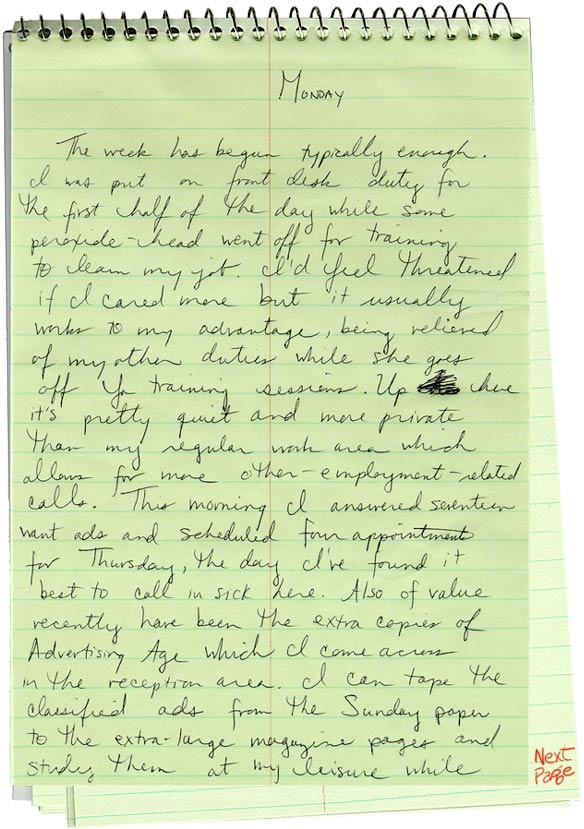 Monday
The week has begun typically enough.
I was put on front desk duty for
the first half of the day while some
peroxide-head went off for training
to learn my job. I'd feel threatened
if I cared more but it usually
works to my advantage, being relieved
of my other duties while she goes
off for training sessions. Up here
it's pretty quiet and more private
than my regular work area which
allows for more other-employment-related
calls. This morning I answered seventeen
want ads and scheduled four appointments
for Thursday, the day I've found it
best to call in sick here. Also of value
recently have been the extra copies of
Advertising Age which I come across
in the reception area. I can tape the
classified ads from the Sunday paper
to the extra-large magazine pages and
study them at my leisure while
Next
Page